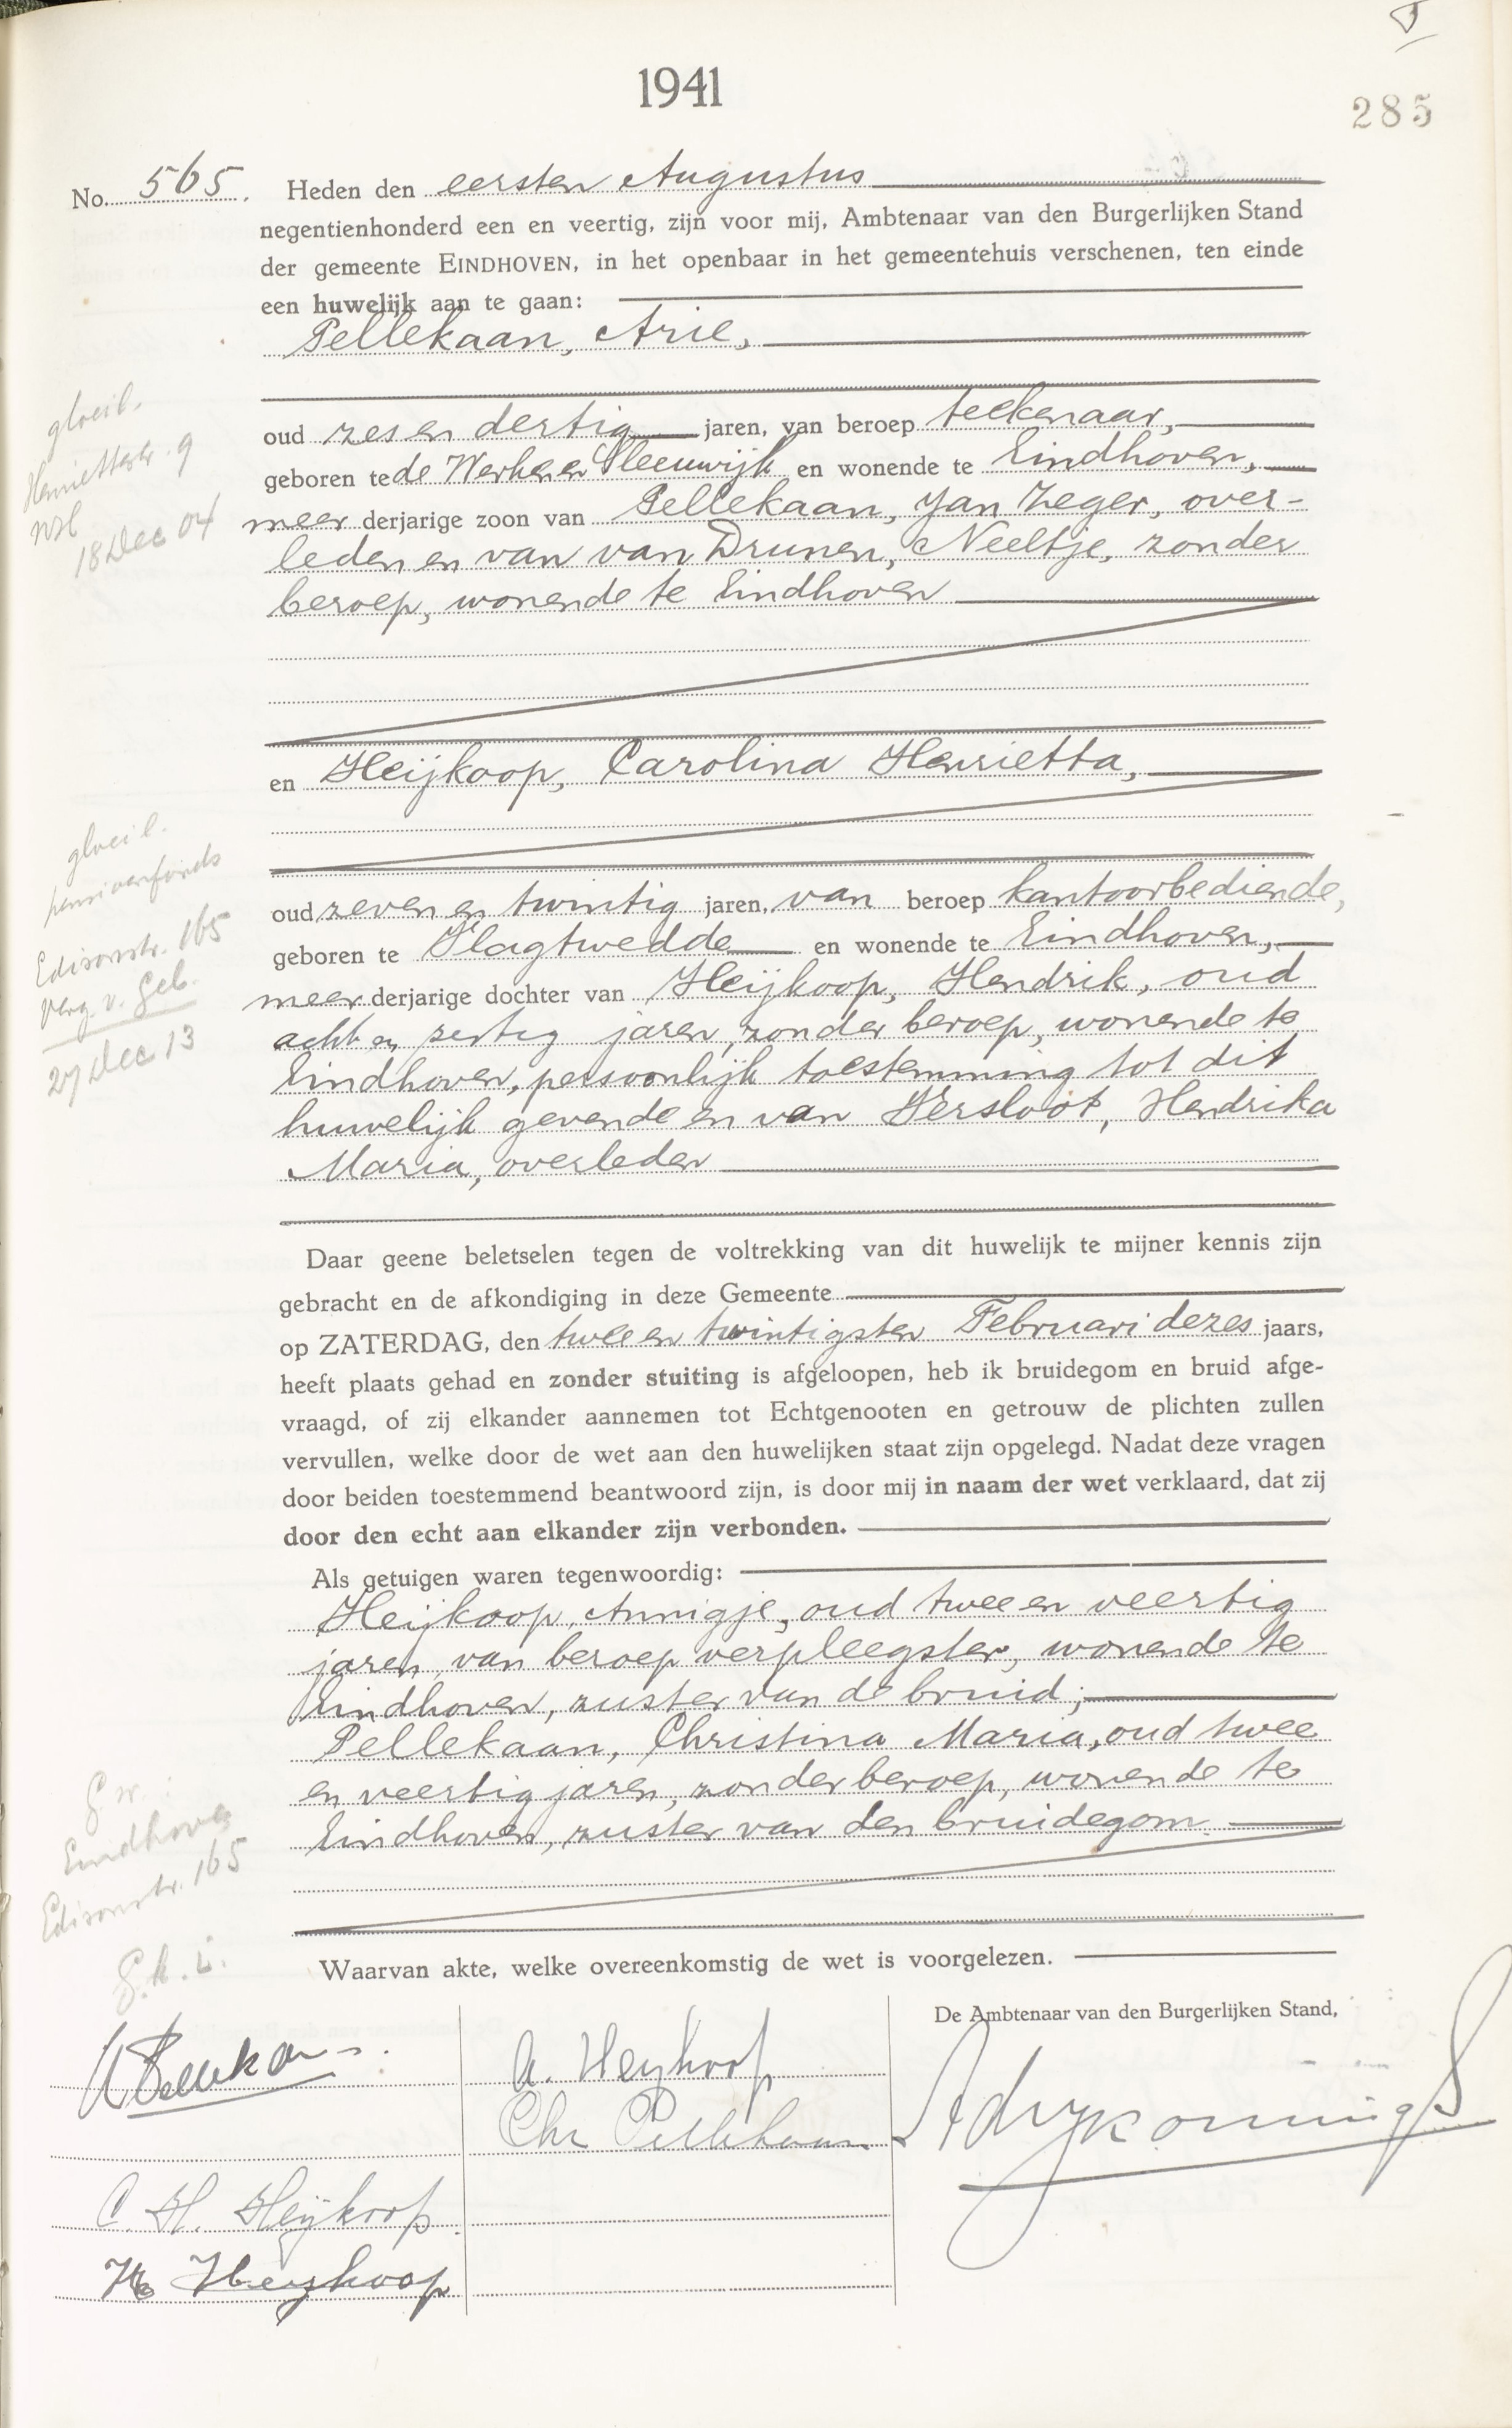 1941
285
No. 565. Heden den eersten Augustus
negentienhonderd een en veertig, zijn voor mij, Ambtenaar van den Burgerlijken Stand
der gemeente EINDHOVEN, in het openbaar in het gemeentehuis verschenen, ten einde
een huwelijk aan te gaan:
Pellekaan, Arie,
gloeil.
Henriettestr. 9
NH
18 Dec 04
oud zes en dertig jaren, van beroep teekenaar,
geboren te de Werken en Sleeuwijk en wonende te Eindhoven,
meer derjarige zoon van Pellekaan, Jan Zeger, over-
leden en van van Drunen, Neeltje, zonder
beroep, wonende te Eindhoven
en Heijkoop, Carolina Henrietta,
gloeil.
pensioenfonds
Edisonstr. 165
verg. v. Geb.
27 Dec 13
oud zeven en twintig jaren, van beroep kantoorbediende,
geboren te Vlagtwedde en wonende te Eindhoven,
meer derjarige dochter van Heijkoop, Hendrik, oud
acht en zestig jaren, zonder beroep, wonende te
Eindhoven, persoonlijk toestemming tot dit
huwelijk gevende en van Versloot, Hendrika
Maria, overleden
Daar geene beletselen tegen de voltrekking van dit huwelijk te mijner kennis zijn
gebracht en de afkondiging in deze Gemeente
op ZATERDAG, den twee en twintigsten Februari dezes jaars,
heeft plaats gehad en zonder stuiting is afgeloopen, heb ik bruidegom en bruid afge-
vraagd, of zij elkander aannemen tot Echtgenooten en getrouw de plichten zullen
vervullen, welke door de wet aan den huwelijken staat zijn opgelegd. Nadat deze vragen
door beiden toestemmend beantwoord zijn, is door mij in naam der wet verklaard, dat zij
door den echt aan elkander zijn verbonden.
Als getuigen waren tegenwoordig:
Heijkoop, Annigje, oud twee en veertig
jaren, van beroep verpleegster, wonende te
Eindhoven, zuster van de bruid;
Pellekaan, Christina Maria, oud twee
en veertig jaren, zonder beroep, wonende te
Eindhoven, zuster van den bruidegom.
Eindhoven
Edisonstr. 165
Waarvan akte, welke overeenkomstig de wet is voorgelezen.
De Ambtenaar van den Burgerlijken Stand,
Pellekaan
A. Heykoop
Chr Pellekaan
C. H. Heijkoop
H Heykoop